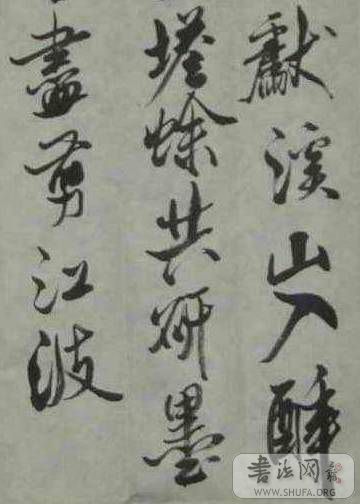 獻溪山入醉
蜍共研墨
盡剪江波
書法网
WWW.SHUFA.ORG